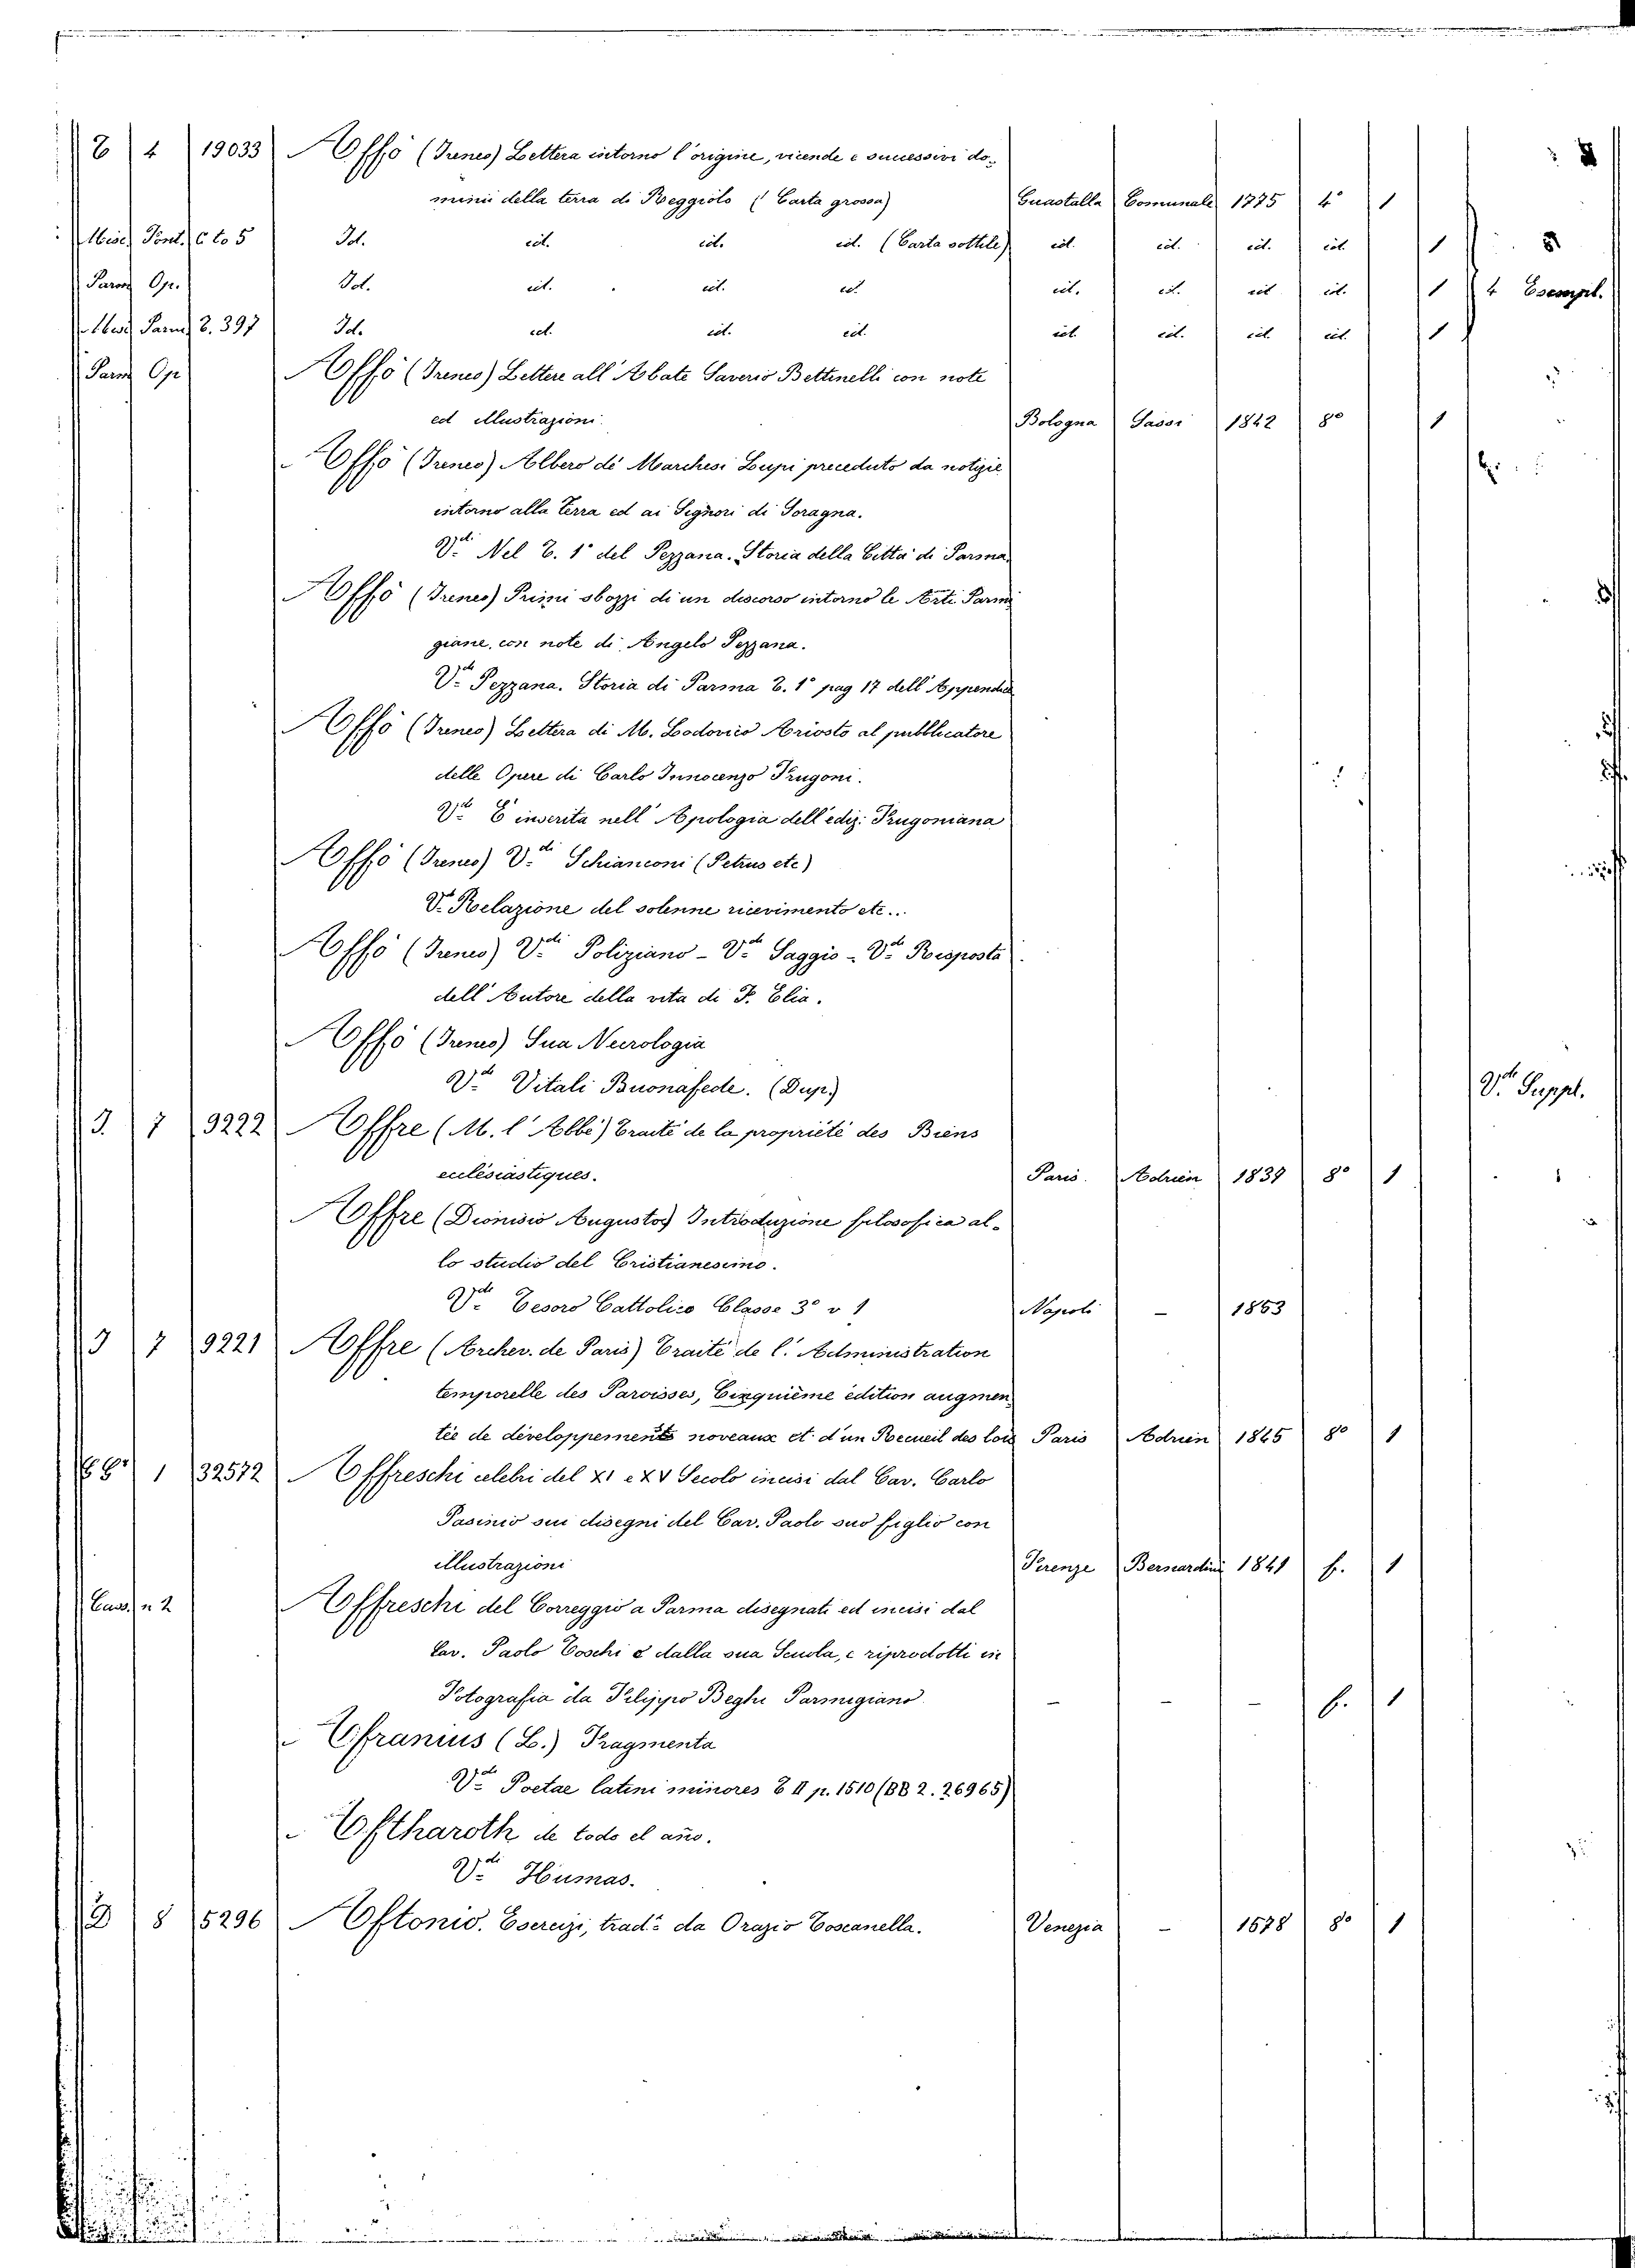 Z 4 19033 Affò (Ireneo) Lettera intorno l'origine, vicende e successivi do-
minii della terra di Reggiolo (Carta grossa) Guastalla Comunale 1775 4° 1
Id. id. id. id. (Carta sottile) id. id. id. id. 1
Parm Op. Id. id. id. id. id. id. id. id. 1 4 Esempl.
Misc Parm 8. 397 Id. id. id. id. id. id. id. id. 1
Parm Op Affò (Ireneo) Lettere all'Abate Saverio Bettinelli con note
ed illustrazioni. Bologna Sassi 1842 8° 1
Affò (Ireneo) Albero de' Marchesi Lupi preceduto da notizie
intorno alla terra ed ai Signori di Soragna.
Vdi Nel T. 1° del Pezzana. Storia della Città di Parma
Affò (Ireneo) Primi sbozzi di un discorso intorno le Arti Parmi
giane, con note di Angelo Pezzana.
Vdi Pezzana. Storia di Parma T. 1° pag 17 dell'Appendice
Affò (Ireneo) Lettera di M. Lodovico Ariosto al pubblicatore
delle Opere di Carlo Innocenzo Frugoni.
Vdi È inserita nell'Apologia dell'ediz: Frugoniana
Affò (Ireneo) Vdi Schianconi (Petrus etc)
V. Relazione del solenne ricevimento etc..
Affò (Ireneo) Vdi Poliziano - Vdi Saggio - Vdi Risposta
dell'Autore della vita di F. Elia.
Affò (Ireneo) Sua Necrologia
Vdi Vitali Buonafede. (Dup.) Vdi Suppl.
J. 7 9222 Affre (M. l'Abbé) Traité de la propriété des Biens
ecclésiastiques. Paris. Adrien 1839 8° 1
Affre (Dionisio Augusto) Introduzione filosofica al-
lo studio del Cristianesimo.
Vdi Tesoro Cattolico Classe 3° v 1 Napoli - 1853
J 7 9221 Affre (Archev. de Paris) Traité de l'Administration
temporelle des Paroisses, Cinquième édition augmen
tée de développements noveaux et d'un Recueil des lois Paris Adrien 1845 8° 1
1 32572 Affreschi celebri del XI e XV Secolo incisi dal Cav. Carlo
Pasinio sui disegni del Cav. Paolo suo figlio con
illustrazioni Firenze Bernardini 1841 f. 1
Cass. n 2 Affreschi del Correggio a Parma disegnati ed incisi dal
Cav. Paolo Toschi e dalla sua Scuola, e riprodotti in
Fotografia da Filippo Beghi Parmigiano - - - f. 1
Afranius (L.) Fragmenta
Vdi Poetae latini minores T II p. 1510 (BB 2. 26965)
Aftharoth de todo el año.
Vdi Humas.
D 8 5296 Aftonio. Esercizi, trad: da Orazio Toscanella. Venezia - 1578 8° 1